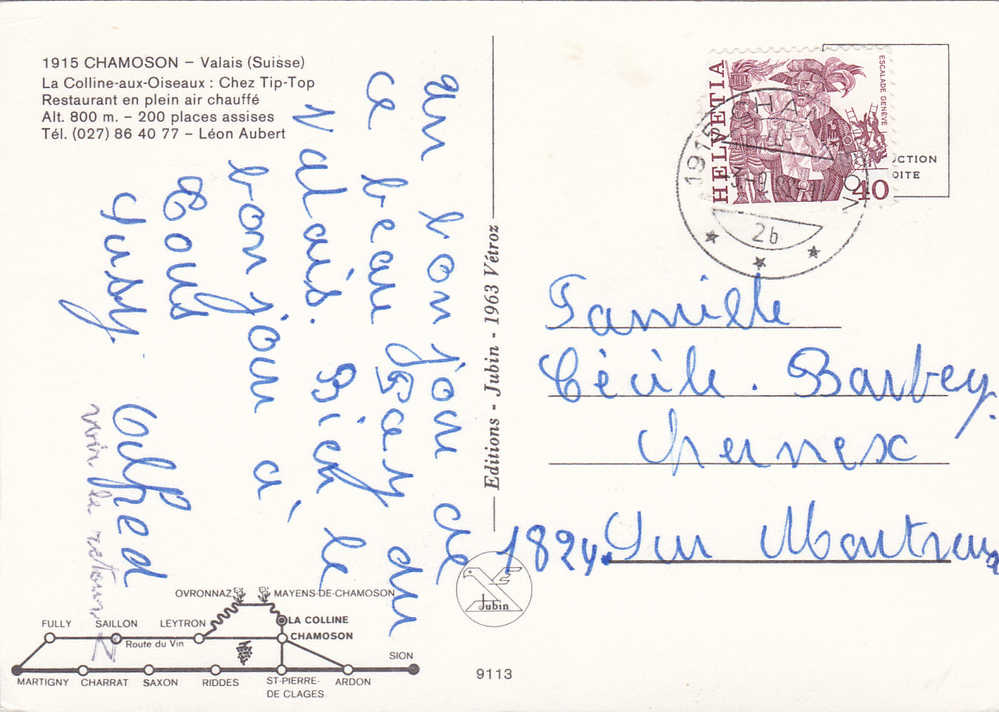 1915 CHAMOSON – Valais (Suisse)
La Colline-aux-Oiseaux : Chez Tip-Top
Restaurant en plein air chauffé
Alt. 800 m. – 200 places assises
Tél. (027) 86 40 77 – Léon Aubert
un bon jour de
ce beau Pay du
Valais. Bien le
bon jour à
tous
Susy. Alfred
voir le retour
Editions - Jubin - 1963 Vétroz
HELVETIA
ESCALADE GENÈVE
40
1915 CHA
ON
2b
UCTION
OITE
Famille
Cécile. Barbey.
Chernex
1824. Sur Montreux
Jubin
OVRONNAZ
MAYENS-DE-CHAMOSON
LA COLLINE
FULLY
SAILLON
LEYTRON
CHAMOSON
Route du Vin
SION
MARTIGNY
CHARRAT
SAXON
RIDDES
ST-PIERRE-
DE CLAGES
ARDON
9113